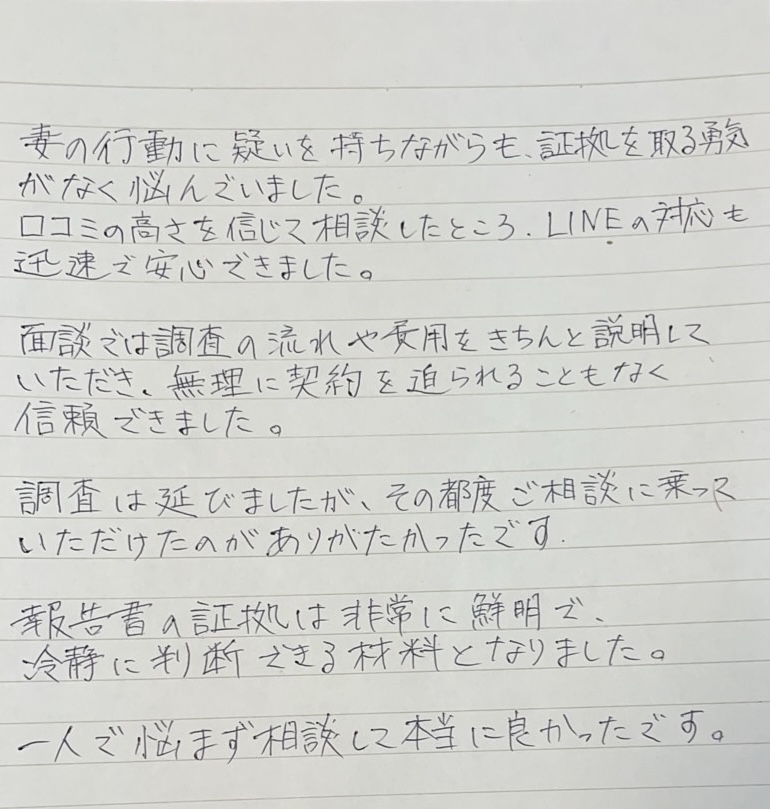 妻の行動に疑いを持ちながらも、証拠を取る勇気
がなく悩んでいました。
口コミの高さを信じて相談したところ、LINEの対応も
迅速で安心できました。
面談では調査の流れや費用をきちんと説明して
いただき、無理に契約を迫られることもなく
信頼できました。
調査は延びましたが、その都度ご相談に乗って
いただけたのがありがたかったです.
報告書の証拠は非常に鮮明で、
冷静に判断できる材料となりました。
一人で悩まず相談して本当に良かったです。